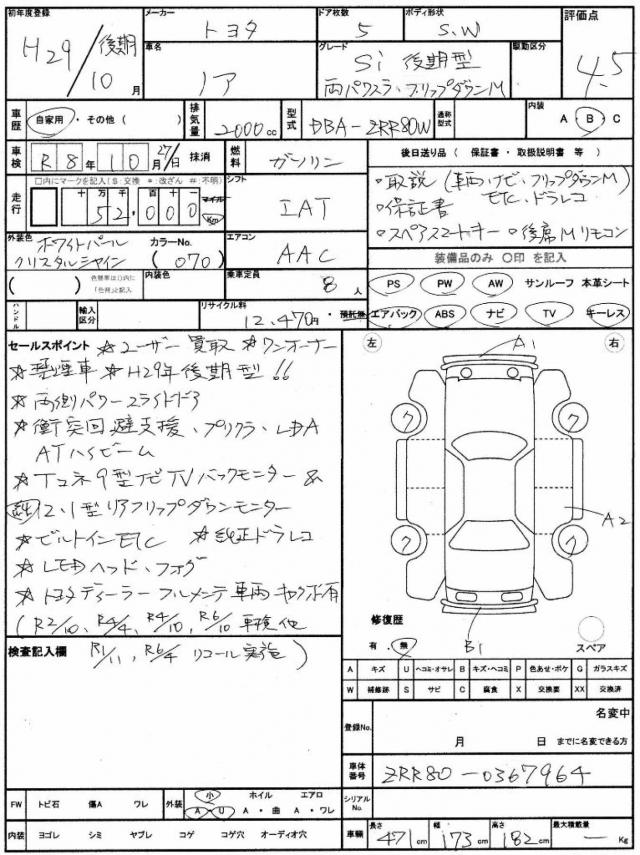 初年度登録 メーカー トヨタ ドア枚数 5 ボディ形状 S.W 評価点
H29/10月 後期 車名 ノア グレード Si 後期型 両パワスラ・フリップダウンM 駆動区分 4.5
車歴 自家用・その他( ) 排気量 2000cc 型式 DBA-ZRR80W 通称型式 内装 A・B・C
車検 R8年10月27日 抹消 燃料 ガソリン 後日送り品(保証書・取扱説明書 等)
走行 □内にマークを記入(S:交換 *:改ざん #:不明) シフト IAT ・取説(車両、ナビ、フリップダウンM)
十 万 千 百 十 52,000 マイル Km ETC、ドラレコ
・保証書
・スペアスマートキー ・後席Mリモコン
外装色 ホワイトパール クリスタルシャイン カラーNo. (070) エアコン AAC 装備品のみ ○印 を記入
( ) 色替車は()内に「色替」と記入 内装色 乗車定員 8人 PS PW AW サンルーフ 本革シート
ハンドル 輸入区分 リサイクル料 12,470円・預託無 エアバック ABS ナビ TV キーレス
セールスポイント ☆ユーザー買取 ☆ワンオーナー
☆禁煙車 ☆H29年後期型!!
☆両側パワースライドドア
☆衝突回避支援、プリクラ、LDA
ATハイビーム
☆Tコネ9型ナビTVバックモニター&
純12.1型リアフリップダウンモニター
☆ビルトインETC ☆純正ドラレコ
☆LEDヘッド、フォグ
☆トヨタディーラーフルメンテ車両 キロク有
(R2/10、R4/4、R4/10、R6/10 車検他
検査記入欄 R1/11、R6/4 リコール実施)
左 右
A1
ク ク
A2
ク ク
B1
修復歴
有・無 スペア
A キズ U ヘコミ・オサレ B キズ・ヘコミ P 色あせ・ボケ G ガラスキズ
W 補修跡 S サビ C 腐食 X 交換要 XX 交換済
登録No. 名変中
月 日 までに名変できる方
車体番号 ZRR80-0367964
FW トビ石 傷A ワレ 外装 小 ホイル エアロ シリアルNo.
A・U A・曲 A・ワレ
内装 ヨゴレ シミ ヤブレ コゲ コゲ穴 オーディオ穴 車輛 長さ 471cm 幅 173cm 高さ 182cm 最大積載量 — Kg